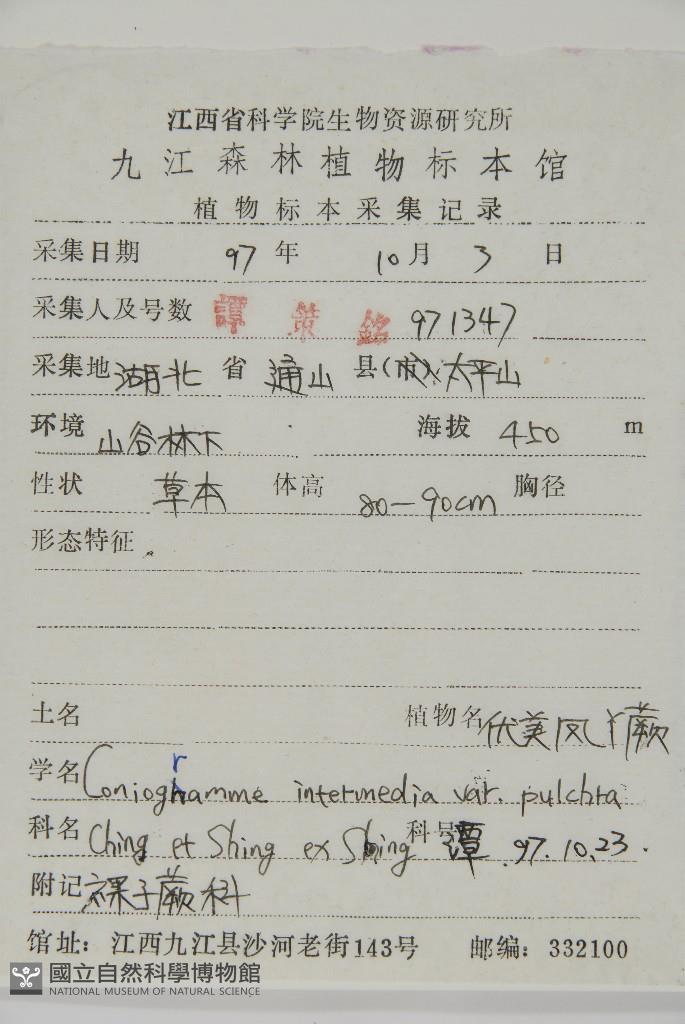 江西省科学院生物资源研究所
九江森林植物标本馆
植物标本采集记录
采集日期 97 年 10 月 3 日
采集人及号数 譚策銘 971347
采集地 湖北 省 通山 县(市) 太平山
环境 山谷林下 海拔 450 m
性状 草本 体高 80—90cm 胸径
形态特征
土名 植物名 优美凤丫蕨
学名 Coniogramme intermedia var. pulchra
科名 Ching et Shing ex Shing 科号 谭 97.10.23.
附记 裸子蕨科
馆址：江西九江县沙河老街143号 邮编：332100
國立自然科學博物館
NATIONAL MUSEUM OF NATURAL SCIENCE